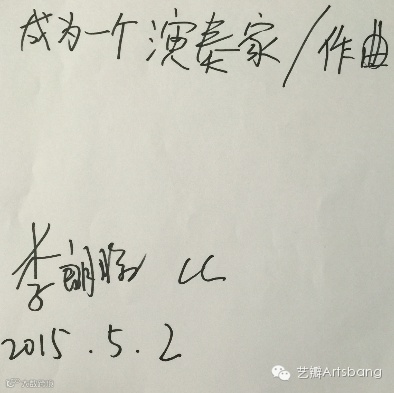 成为一个演奏家/作曲
李朗 CC
2015.5.2
艺瓣Artsbang